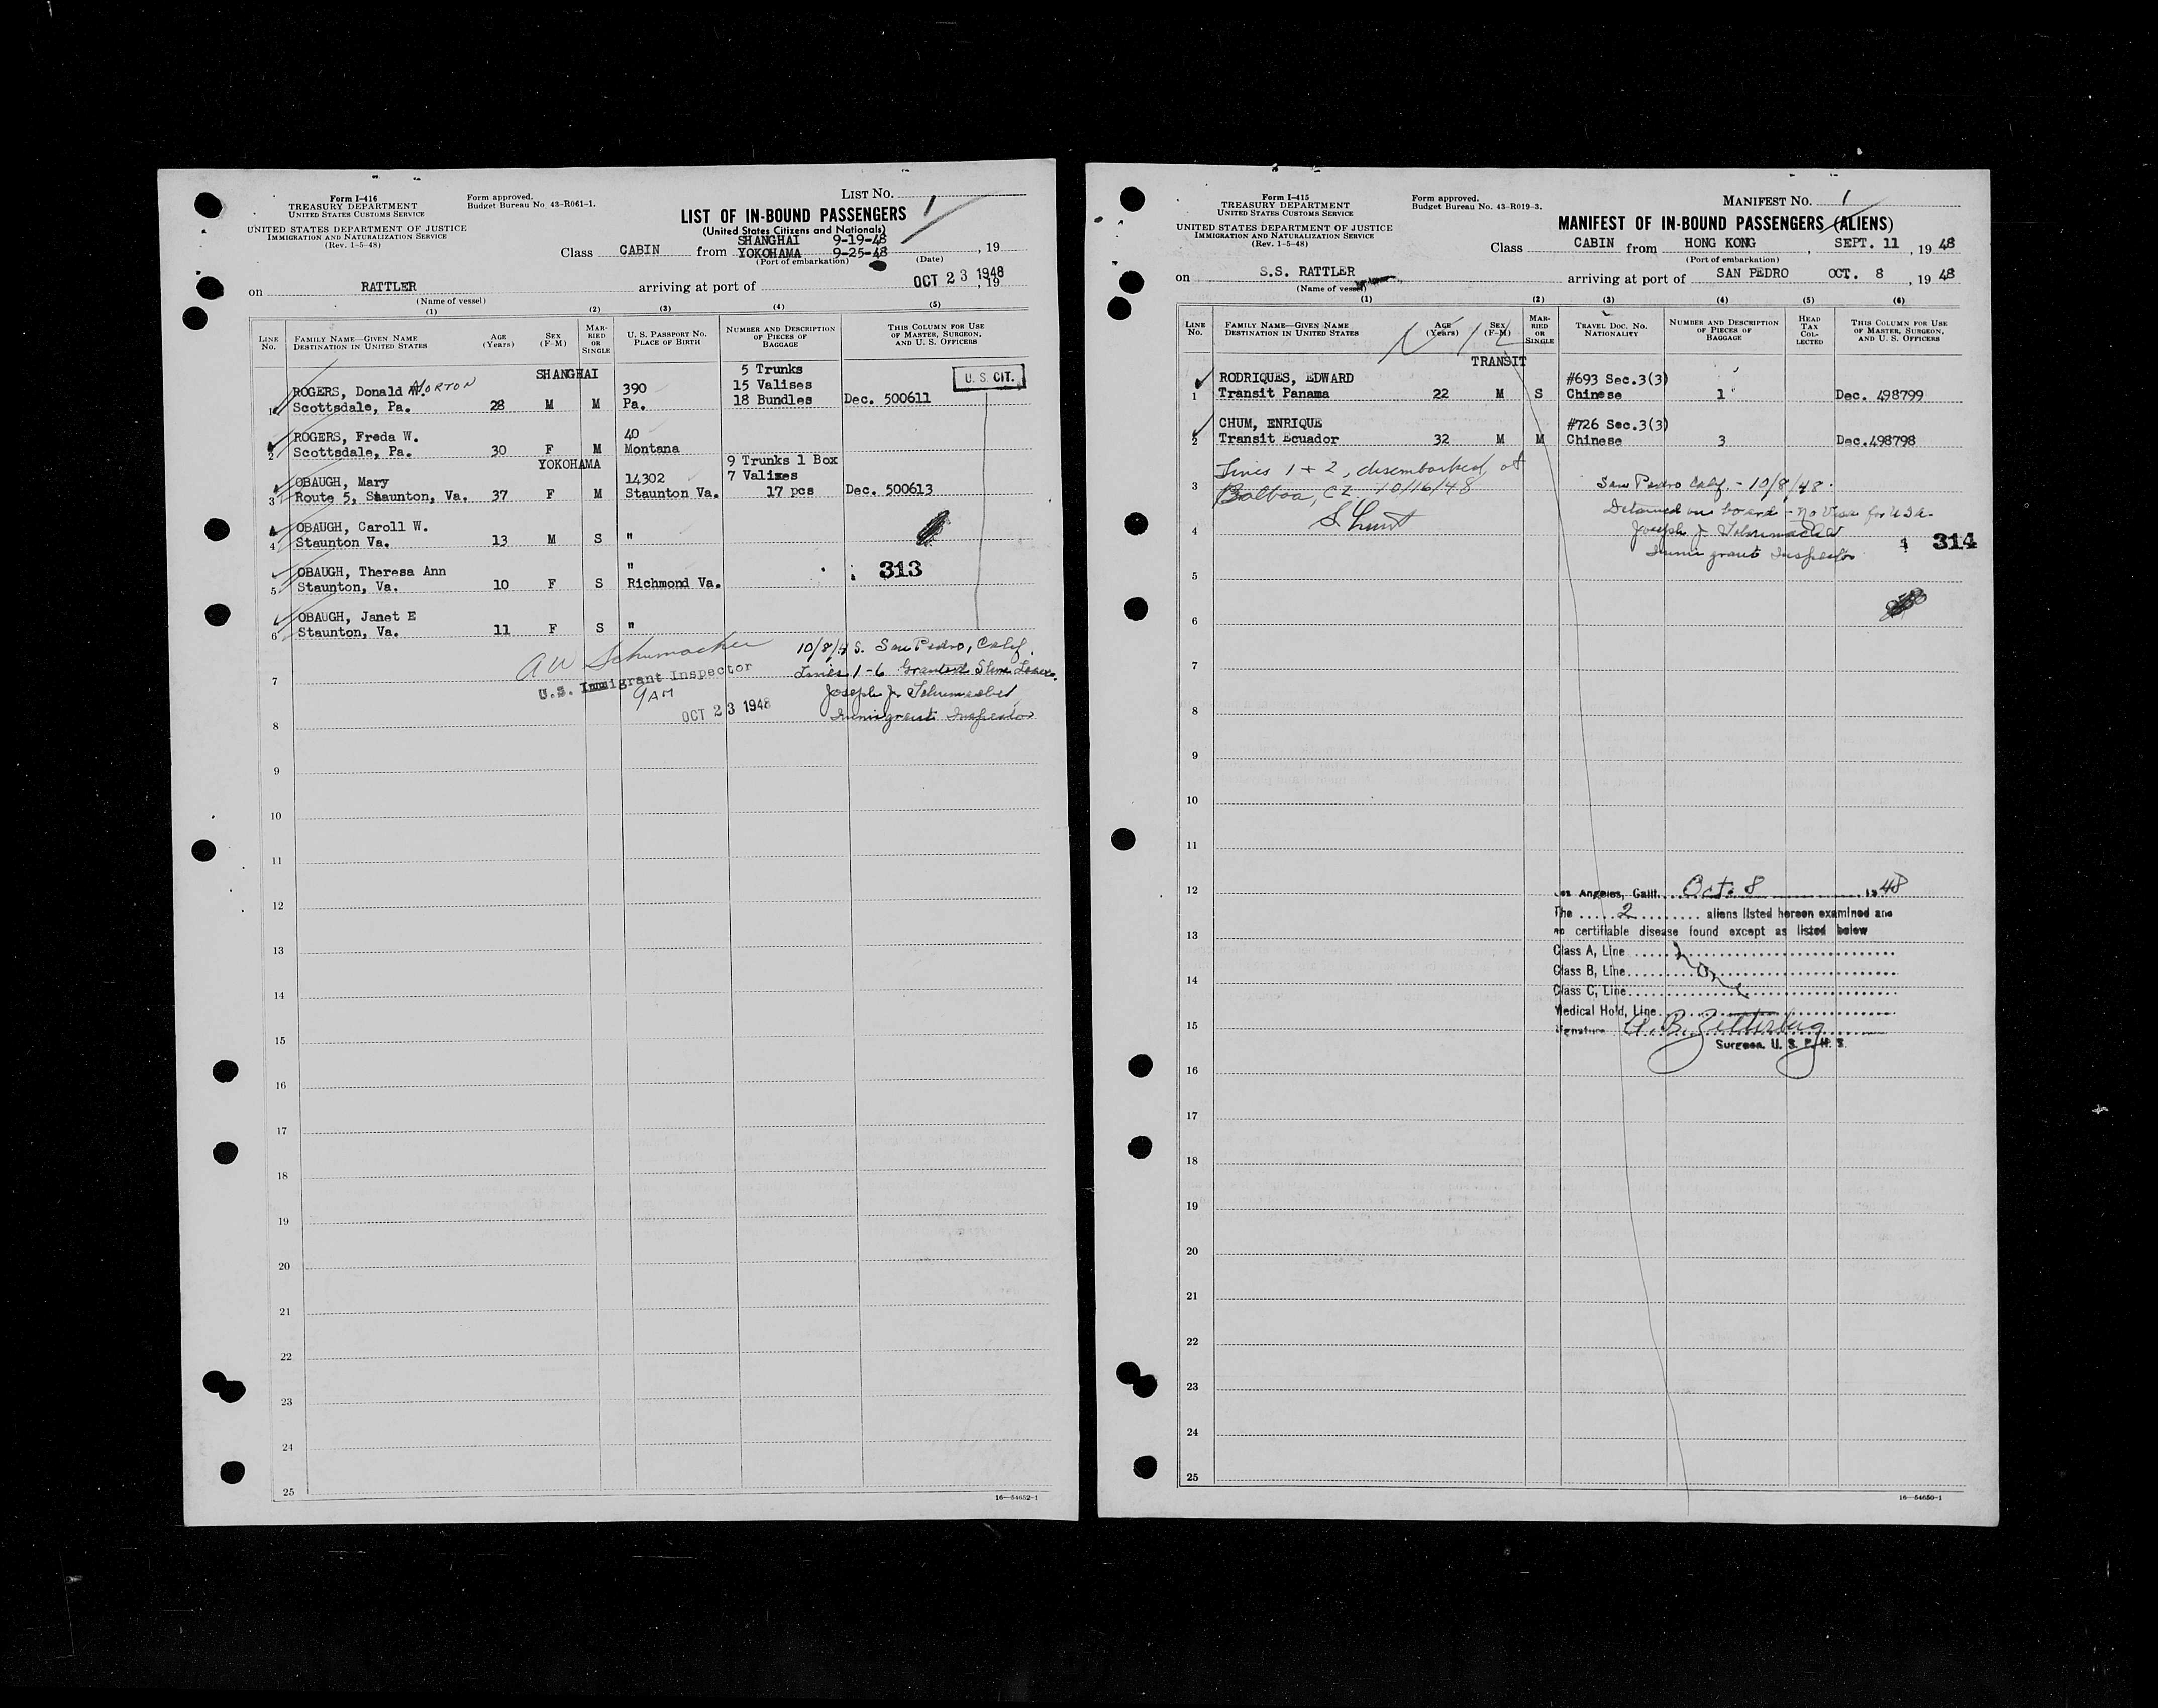 Form I-416
TREASURY DEPARTMENT
UNITED STATES CUSTOMS SERVICE
UNITED STATES DEPARTMENT OF JUSTICE
IMMIGRATION AND NATURALIZATION SERVICE
(Rev. 1-5-48)
Form approved.
Budget Bureau No. 43-R061-1.
LIST No. 1
LIST OF IN-BOUND PASSENGERS
(United States Citizens and Nationals)
SHANGHAI 9-19-48
Class CABIN from YOKOHAMA 9-25-48, 19
(Port of embarkation) (Date)
on RATTLER arriving at port of OCT 23 1948, 19
(Name of vessel)
(1) (2) (3) (4) (5)
LINE No. FAMILY NAME—GIVEN NAME DESTINATION IN UNITED STATES AGE (Years) SEX (F-M) MARRIED OR SINGLE U. S. PASSPORT NO. PLACE OF BIRTH NUMBER AND DESCRIPTION OF PIECES OF BAGGAGE THIS COLUMN FOR USE OF MASTER, SURGEON, AND U. S. OFFICERS
SHANGHAI 5 Trunks U. S. CIT.
ROGERS, Donald MORTON 390 15 Valises
1 Scottsdale, Pa. 28 M M Pa. 18 Bundles Dec. 500611
ROGERS, Freda W. 40
2 Scottsdale, Pa. 30 F M Montana
YOKOHAMA 9 Trunks 1 Box
OBAUGH, Mary 14302 7 Valises
3 Route 5, Staunton, Va. 37 F M Staunton Va. 17 pcs Dec. 500613
OBAUGH, Caroll W.
4 Staunton Va. 13 M S "
OBAUGH, Theresa Ann " 313
5 Staunton, Va. 10 F S Richmond Va.
OBAUGH, Janet E
6 Staunton, Va. 11 F S "
AW Schumacher 10/8/48. San Pedro, Calif.
U.S. Immigrant Inspector Lines 1-6 Granted Shore Leave.
7 9 AM Joseph J. Schumacher
OCT 23 1948 Immigrant Inspector
8
9
10
11
12
13
14
15
16
17
18
19
20
21
22
23
24
25
16—54652-1
Form I-415
TREASURY DEPARTMENT
UNITED STATES CUSTOMS SERVICE
UNITED STATES DEPARTMENT OF JUSTICE
IMMIGRATION AND NATURALIZATION SERVICE
(Rev. 1-5-48)
Form approved.
Budget Bureau No. 43-R019-3.
MANIFEST No. 1
MANIFEST OF IN-BOUND PASSENGERS (ALIENS)
Class CABIN from HONG KONG, SEPT. 11, 1948
(Port of embarkation)
on S.S. RATTLER arriving at port of SAN PEDRO OCT. 8, 1948
(Name of vessel)
(1) (2) (3) (4) (5) (6)
LINE No. FAMILY NAME—GIVEN NAME DESTINATION IN UNITED STATES AGE (Years) SEX (F-M) MARRIED OR SINGLE TRAVEL DOC. NO. NATIONALITY NUMBER AND DESCRIPTION OF PIECES OF BAGGAGE HEAD TAX COLLECTED THIS COLUMN FOR USE OF MASTER, SURGEON, AND U. S. OFFICERS
TRANSIT
RODRIQUES, EDWARD #693 Sec.3(3)
1 Transit Panama 22 M S Chinese 1 Dec. 498799
CHUM, ENRIQUE #726 Sec.3(3)
2 Transit Ecuador 32 M M Chinese 3 Dec.498798
Lines 1 + 2, disembarked at
3 Balboa, CZ. 10/16/48 San Pedro Calif. - 10/8/48.
Detained on board - no Visa for USA.
4 Joseph J. Schumacher 314
Immigrant Inspector
5
6
7
8
9
10
11
12 Los Angeles, Calif. Oct. 8 1948
The 2 aliens listed hereon examined and
13 no certifiable disease found except as listed below
Class A, Line none
Class B, Line
14 Class C, Line
Medical Hold, Line
15 Signature
Surgeon, U. S. P. H. S.
16
17
18
19
20
21
22
23
24
25
16—54650-1